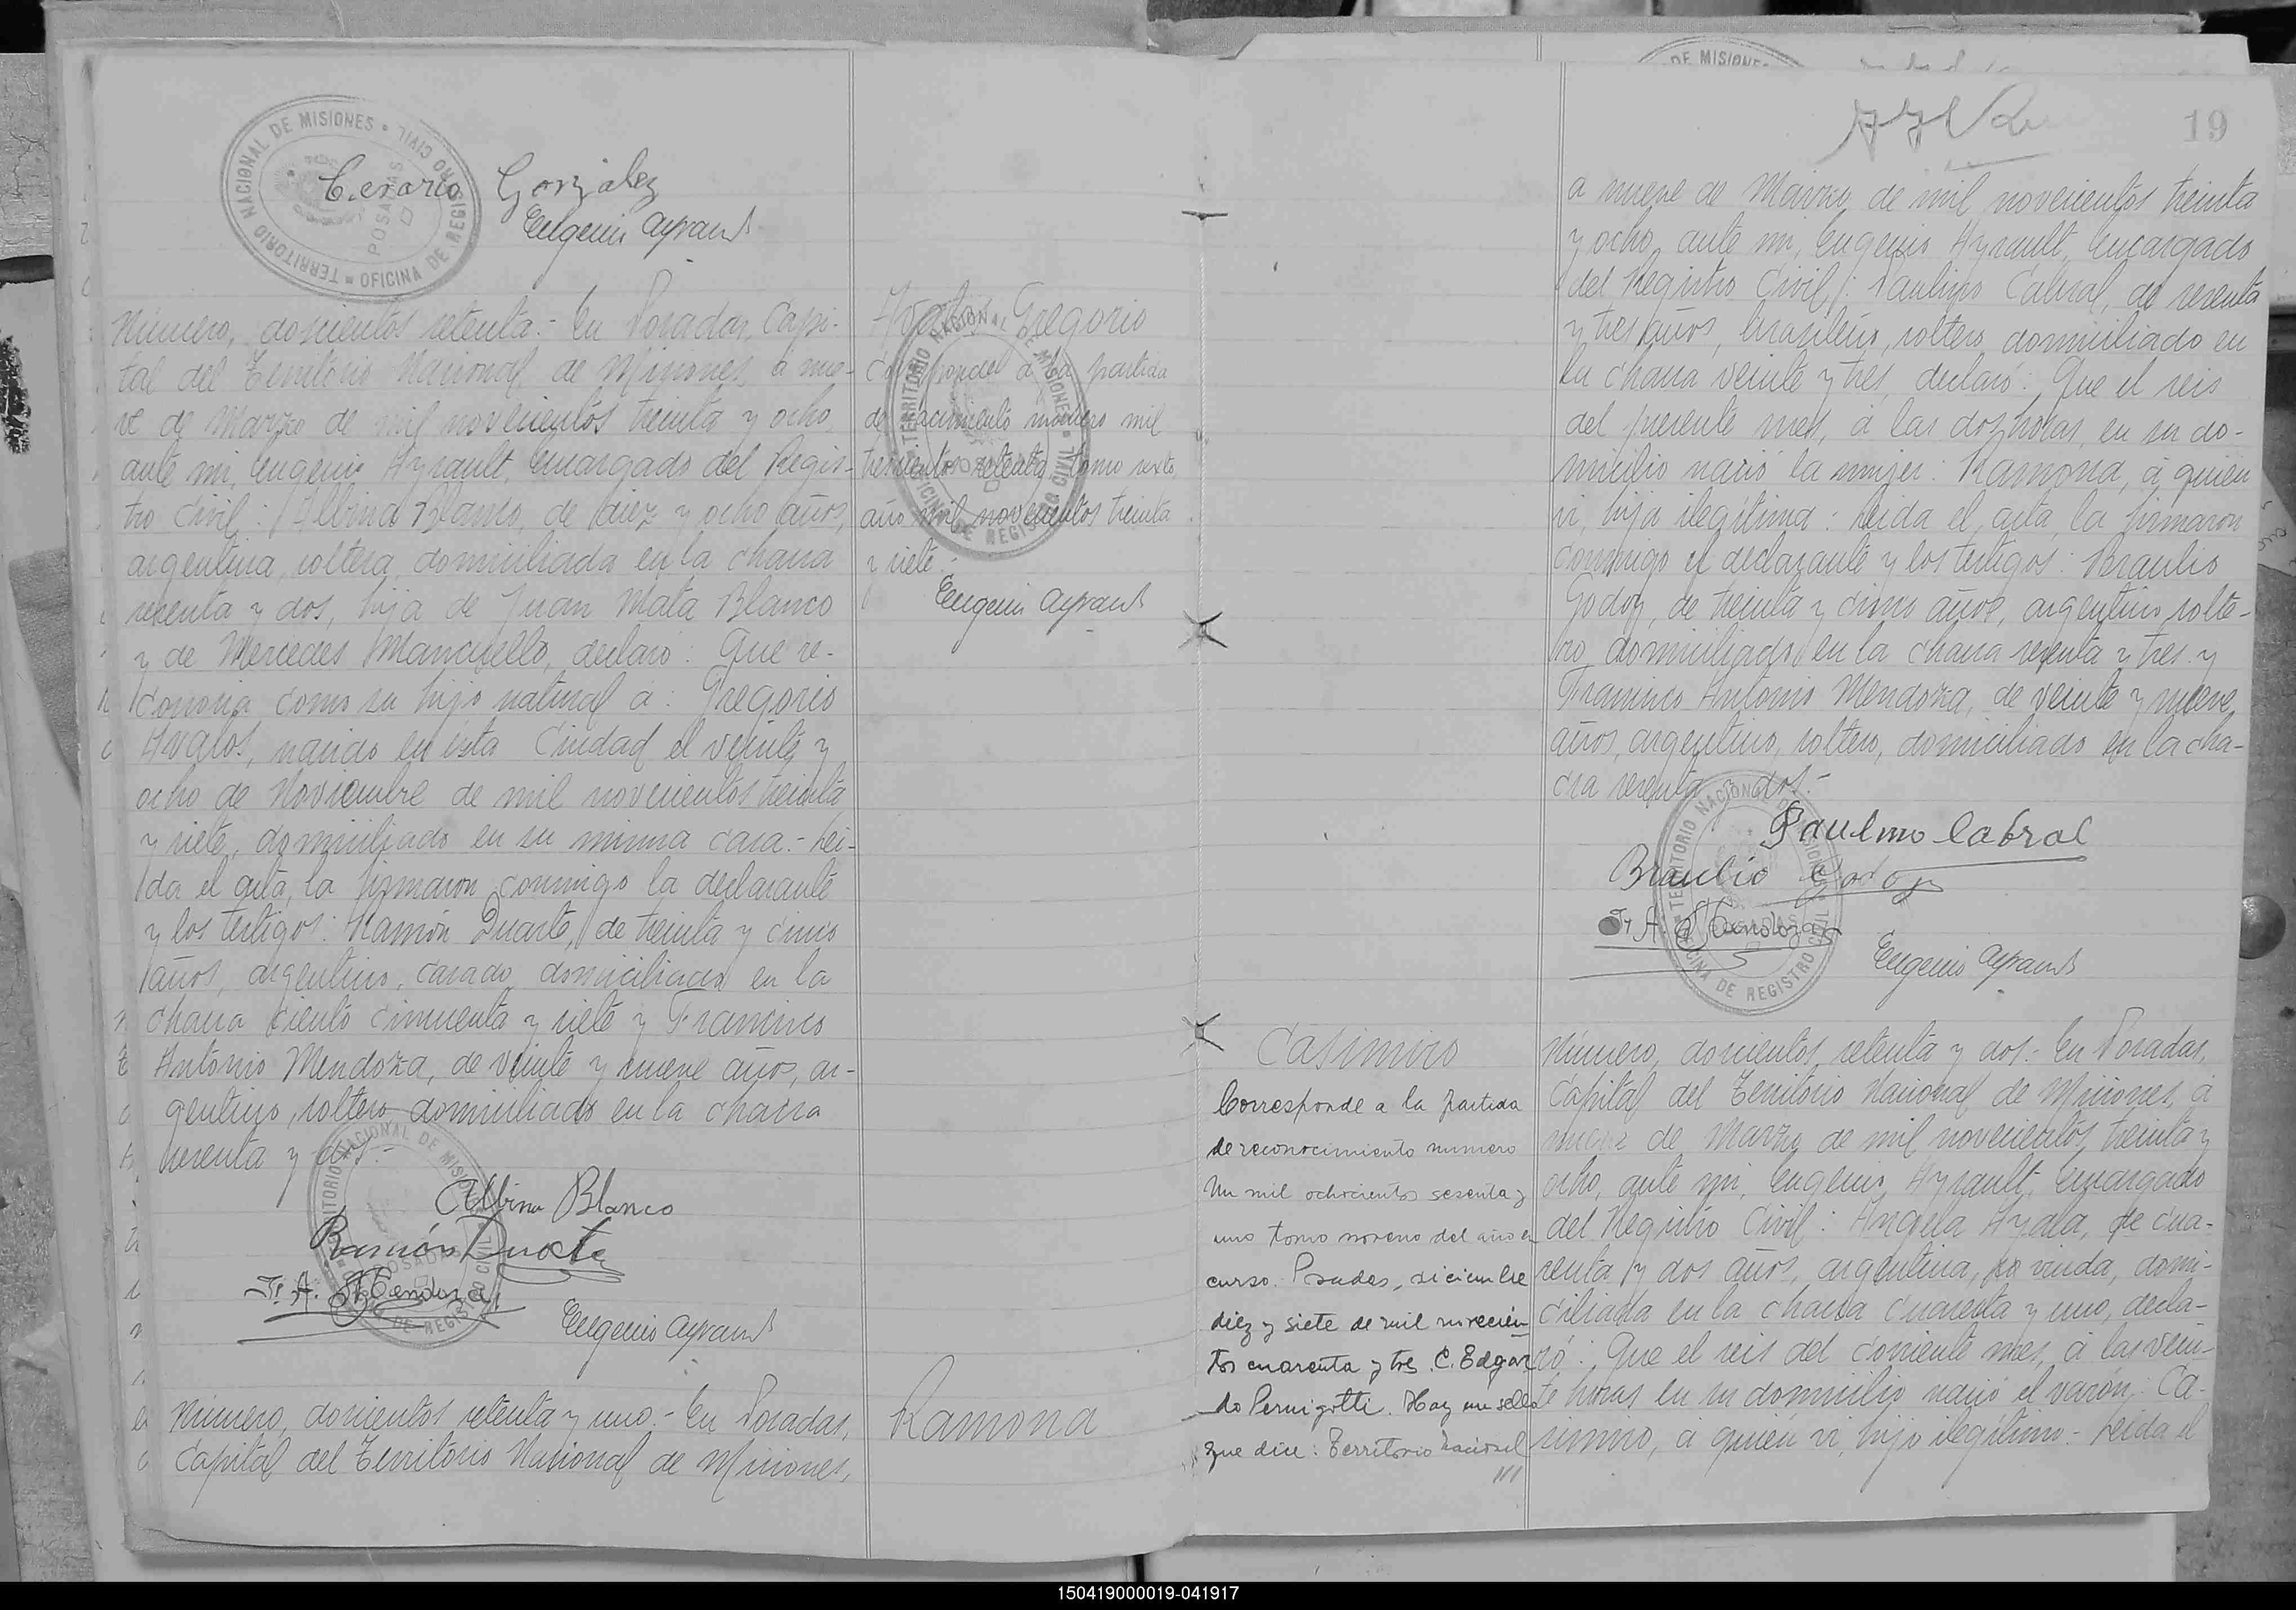 TERRITORIO NACIONAL DE MISIONES
OFICINA DE REGISTRO CIVIL
POSADAS
Cesario González
Eugenio Ayrault
Número, doscientos setenta.- En Posadas, Capi-
tal del Territorio Nacional de Misiones, á nue-
ve de Marzo de mil novecientos treinta y ocho,
ante mi, Eugenio Ayrault, Encargado del Regis-
tro Civil: Albina Blanco, de diez y ocho años,
argentina, soltera, domiciliada en la chacra
sesenta y dos, hija de Juan Mata Blanco
y de Mercedes Mancuello, declaró: Que re-
conocia como su hijo natural á: Gregorio
Avalos, nacido en ésta Ciudad el veinte y
ocho de Noviembre de mil novecientos treinta
y siete, domiciliado en su misma casa.- Leí-
da el acta, la firmaron conmigo la declarante
y los testigos: Ramón Duarte, de treinta y cinco
años, argentino, casado, domiciliado en la
chacra ciento cincuenta y siete y Francisco
Antonio Mendoza, de veinte y nueve años, ar-
gentino, soltero, domiciliado en la chacra
sesenta y dos.-
Albina Blanco
Ramón Duarte
Fr. A. Mendoza
Eugenio Ayrault
Número, doscientos setenta y uno.- En Posadas,
Capital del Territorio Nacional de Misiones,
Avalos Gregorio
Corresponde á la partida
de nacimiento número mil
trescientos setenta, tomo sexto,
año mil novecientos treinta
y siete.-
Eugenio Ayrault
Ramona
DE MISIONES
19
a nueve de Marzo de mil novecientos treinta
y ocho, ante mi, Eugenio Ayrault, Encargado
del Registro Civil: Paulino Cabral, de sesenta
y tres años, brasileño, soltero, domiciliado en
la chacra veinte y tres, declaró: Que el seis
del presente mes, á las dos horas, en su do-
micilio nació la mujer: Ramona, á quien
vi, hija ilegítima: Leída el acta, la firmaron
conmigo el declarante y los testigos: Braulio
Godoy, de treinta y cinco años, argentino, solte-
ro, domiciliado en la chacra sesenta y tres y
Francisco Antonio Mendoza, de veinte y nueve
años, argentino, soltero, domiciliado en la cha-
cra sesenta y dos.-
Paulino Cabral
Braulio Godoy
Fr. A. Mendoza
Eugenio Ayrault
Casimiro
Corresponde a la partida
de reconocimiento numero
Un mil ochocientos sesenta y
uno tomo noveno del año en
curso. Posadas, diciembre
diez y siete de mil novecien
tos cuarenta y tres. C. Edgar
do Pernigotti. Hay un sello
que dice: Territorio Nacional
///
Número, doscientos setenta y dos.- En Posadas,
Capital del Territorio Nacional de Misiones, á
nueve de Marzo de mil novecientos treinta y
ocho, ante mi, Eugenio Ayrault, Encargado
del Registro Civil: Angela Ayala, de cua-
renta y dos años, argentina, viuda, domi-
ciliada en la chacra cuarenta y uno, decla-
ró: Que el seis del corriente mes, á las vein-
te horas en su domicilio nació el varón: Ca-
simiro, á quien vi, hijo ilegítimo.- Leída el
150419000019-041917